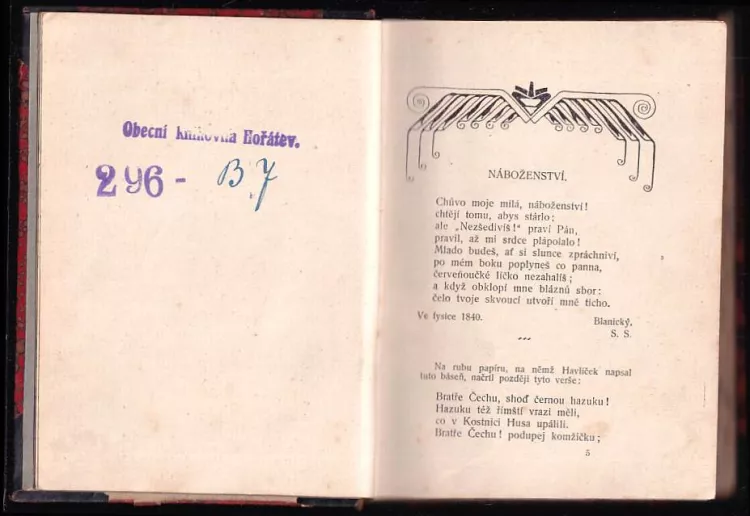 Obecní knihovna Hořátev.
296 - B 7
NÁBOŽENSTVÍ.
Chůvo moje milá, náboženství!
chtějí tomu, abys stárlo;
ale „Nezšedivíš!“ praví Pán,
pravil, až mi srdce plápolalo!
Mlado budeš, ať si slunce zpráchniví,
po mém boku poplyneš co panna,
červeňoučké líčko nezahalíš;
a když obklopí mne bláznů sbor:
čelo tvoje skvoucí utvoří mně ticho.
Ve fysice 1840.
Blanický,
S. S.
Na rubu papíru, na němž Havlíček napsal
tuto báseň, načrtl později tyto verše:
Bratře Čechu, shoď černou hazuku!
Hazuku též římští vrazi měli,
co v Kostnici Husa upálili.
Bratře Čechu! podupej komžičku;
5